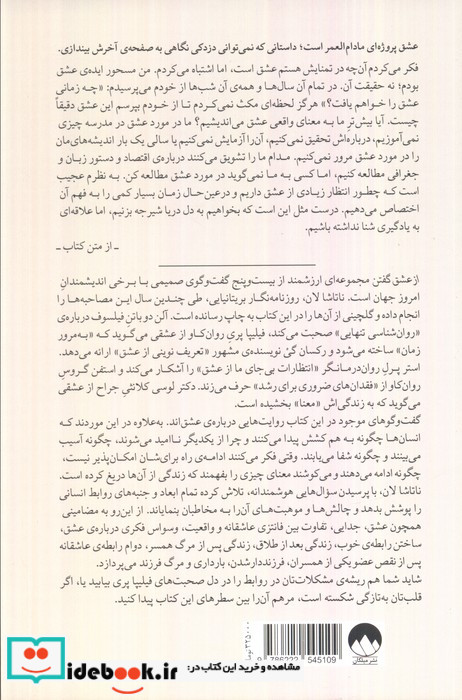 عشق پروژه‌ای مادام‌العمر است؛ داستانی که نمی‌توانی دزدکی نگاهی به صفحه‌ی آخرش بیندازی.
فکر می‌کردم آن‌چه در تمنایش هستم عشق است، اما اشتباه می‌کردم. من مسحور ایده‌ی عشق
بودم؛ نه حقیقت آن. در تمام آن سال‌ها و همه‌ی آن شب‌ها از خودم می‌پرسیدم: «چه زمانی
عشق را خواهم یافت؟» هرگز لحظه‌ای مکث نمی‌کردم تا از خودم بپرسم این عشق دقیقاً
چیست. آیا بیش‌تر ما به معنای واقعی عشق می‌اندیشیم؟ ما در مورد عشق در مدرسه چیزی
نمی‌آموزیم، درباره‌اش تحقیق نمی‌کنیم، آن را آزمایش نمی‌کنیم یا سالی یک بار اندیشه‌های‌مان
را در مورد عشق مرور نمی‌کنیم. مدام ما را تشویق می‌کنند درباره‌ی اقتصاد و دستور زبان و
جغرافی مطالعه کنیم، اما کسی به ما نمی‌گوید در مورد عشق مطالعه کن. به نظرم عجیب
است که چطور انتظار زیادی از عشق داریم و درعین‌حال زمان بسیار کمی را به فهم آن
اختصاص می‌دهیم. درست مثل این است که بخواهیم به دل دریا شیرجه بزنیم، اما علاقه‌ای
به یادگیری شنا نداشته باشیم.
ـ از متن کتاب ـ
از عشق گفتن مجموعه‌ای ارزشمند از بیست‌وپنج گفت‌وگوی صمیمی با برخی اندیشمندانِ
امروز جهان است. ناتاشا لان، روزنامه‌نگار بریتانیایی، طی چندین سال این مصاحبه‌ها را
انجام داده و گلچینی از آن‌ها را در این کتاب به چاپ رسانده است. آلن دوباتنِ فیلسوف درباره‌ی
«روان‌شناسی تنهایی» صحبت می‌کند، فیلیپا پریِ روان‌کاو از عشقی می‌گوید که «به‌مرور
زمان» ساخته می‌شود و رکسان گیْ نویسنده‌ی مشهور «تعریف نوینی از عشق» ارائه می‌دهد.
استر پرلِ روان‌درمانگر «انتظارات بی‌جای ما از عشق» را آشکار می‌کند و استفن گروسِ
روان‌کاو از «فقدان‌های ضروری برای رشد» حرف می‌زند. دکتر لوسی کلانثیِ جراح از عشقی
می‌گوید که به زندگی‌اش «معنا» بخشیده است.
گفت‌وگوهای موجود در این کتاب روایت‌هایی درباره‌ی عشق‌اند. به‌علاوه در این موردند که
انسان‌ها چگونه به هم کشش پیدا می‌کنند و چرا از یکدیگر ناامید می‌شوند، چگونه آسیب
می‌بینند و چگونه شفا می‌یابند. وقتی فکر می‌کنند ادامه‌ی راه برای‌شان امکان‌پذیر نیست،
چگونه ادامه می‌دهند و می‌کوشند معنای چیزی را بفهمند که زندگی از آن‌ها دریغ کرده است.
ناتاشا لان، با پرسیدن سؤال‌هایی هوشمندانه، تلاش کرده تمام ابعاد و جنبه‌های روابط انسانی
را پوشش بدهد و چالش‌ها و موهبت‌های آن را به مخاطبان بنمایاند. از این‌رو به مضامینی
همچون عشق، جدایی، تفاوت بین فانتزی عاشقانه و واقعیت، وسواس فکری درباره‌ی عشق،
ساختن رابطه‌ی خوب، زندگی بعد از طلاق، زندگی پس از مرگ همسر، دوام رابطه‌ی عاشقانه
پس از نقص عضویکی از همسران، فرزنددارشدن، بارداری و مرگ فرزند می‌پردازد.
شاید شما هم ریشه‌ی مشکلات‌تان در روابط را در دل صحبت‌های فیلیپا پری بیابید یا، اگر
قلب‌تان به‌تازگی شکسته است، مرهم آن را بین سطرهای این کتاب پیدا کنید.
۳۲۵۰۰۰ تومان
9 786222 545109
نشر میلکان
iidebook.ir
مشاهده و خرید این کتاب در: